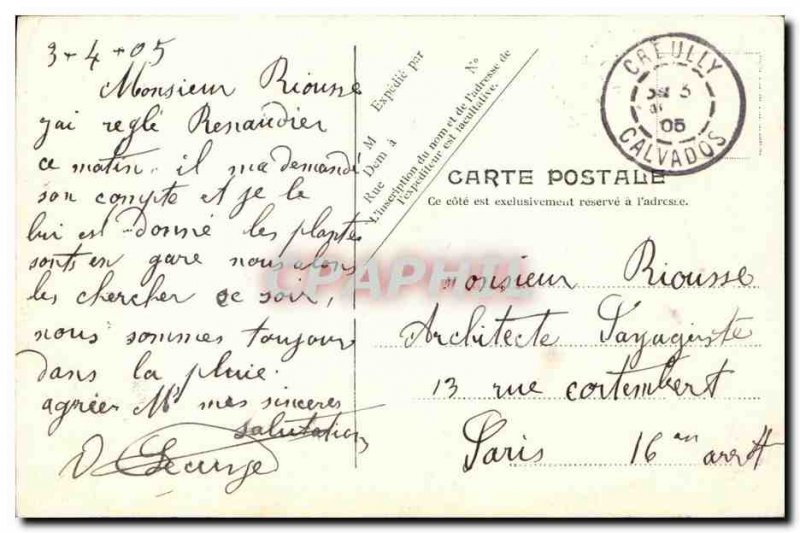 3-4-05
Monsieur Riousse
j'ai reglé Renaudier
ce matin. il ma demandé
son compte et je le
lui est Donné les plantes
sonts en gare nous alons
les chercher ce soir,
nous sommes toujour
dans la pluie.
agréer Mr mes sinceres
salutation
D George
Expédié par
M
Dem à
Rue
N°
L'inscription du nom et de l'adresse de
l'expéditeur est facultative.
CREULLY
3
05
CALVADOS
CARTE POSTALE
Ce côté est exclusivement réservé à l'adresse.
CPAPHIL
Monsieur Riousse
Architecte Paysagiste
13 rue cortembert
Paris 16